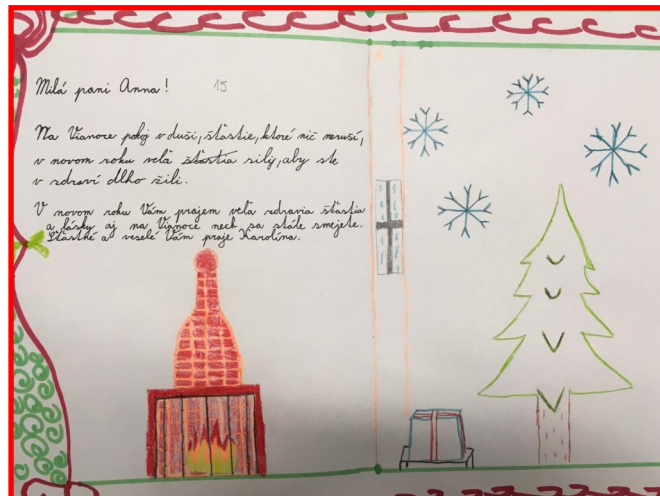 Milá pani Anna! 15
Na Vianoce pokoj v duši, šťastie, ktoré nič neruší,
v novom roku veľa šťastia sily, aby ste
v zdraví dlho žili.
V novom roku Vám prajem veľa zdravia šťastia
a lásky aj na Vianoce nech sa stále smejete.
Šťastné a veselé Vám praje Karolína.